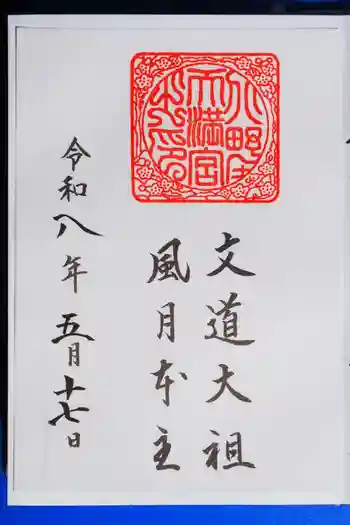 北野
天満宮
之印
文道大祖
風月本主
令和八年五月十七日